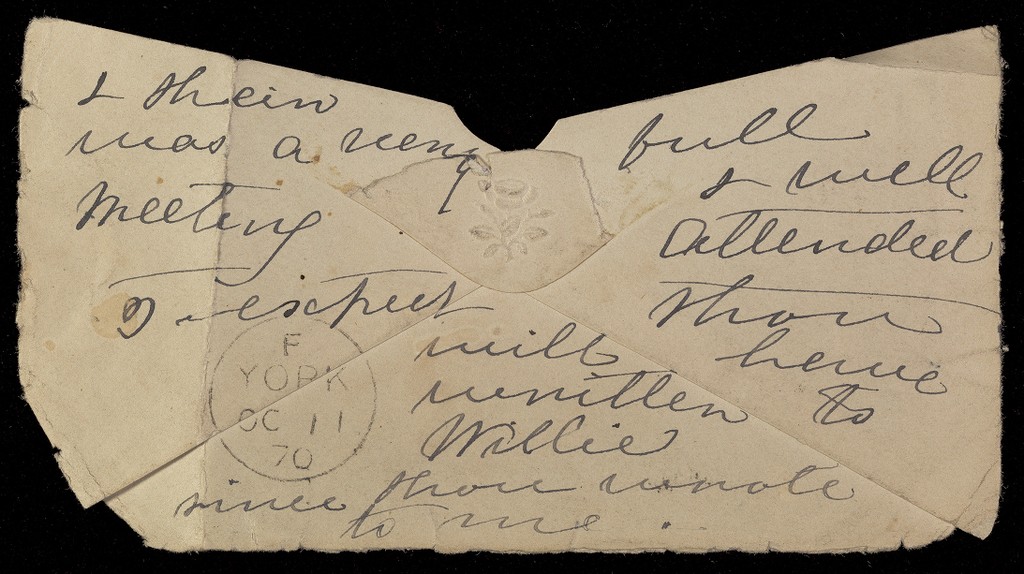 & their
was a very full
& well
Meeting attended
I expect thou
will have
written to
Willie
since thou wrote
to me.
F
YORK
OC 11
70